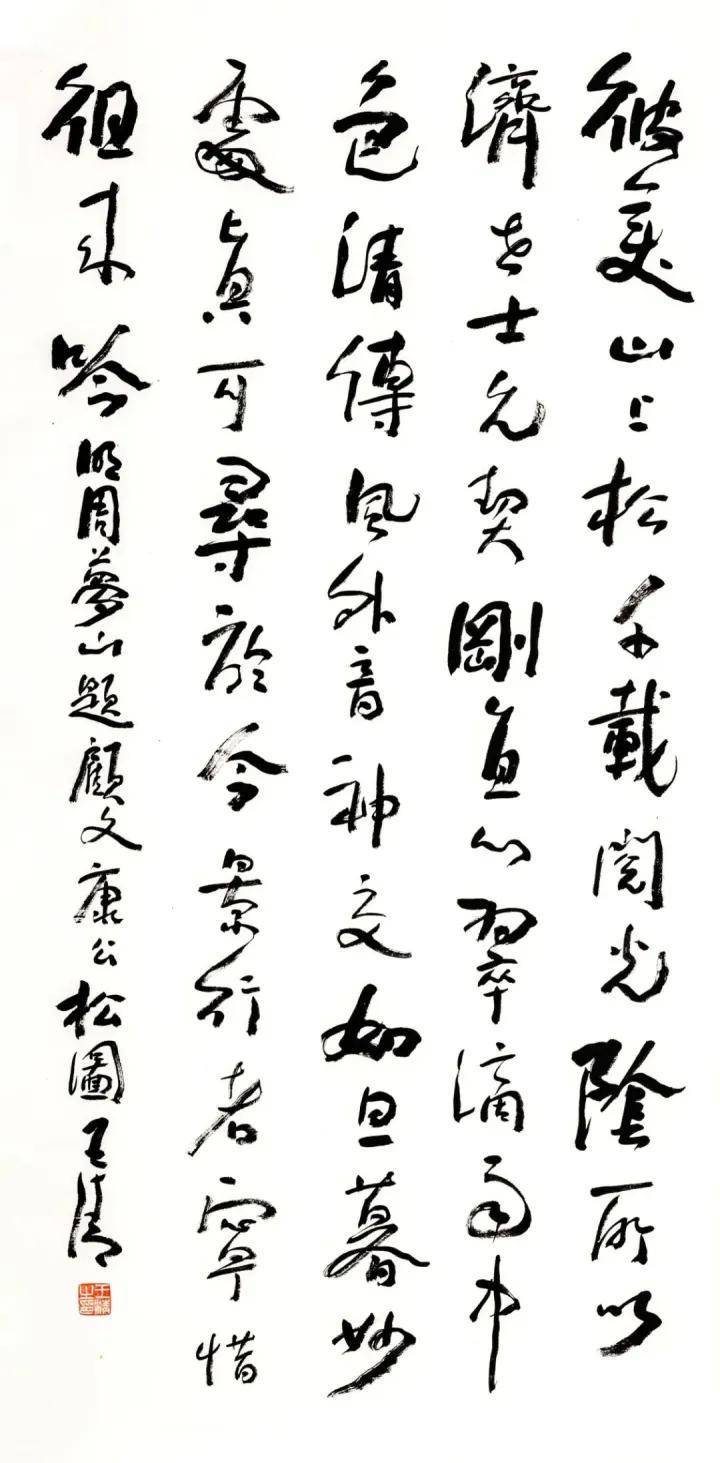 彼美山上松千載閱光陰所以
濟世士允契剛直心翠滴雨中
色清傳風外音神交如旦暮妙
處真可尋於今景行者寧惜
徂来吟明周夢山題顧文康公松圖王